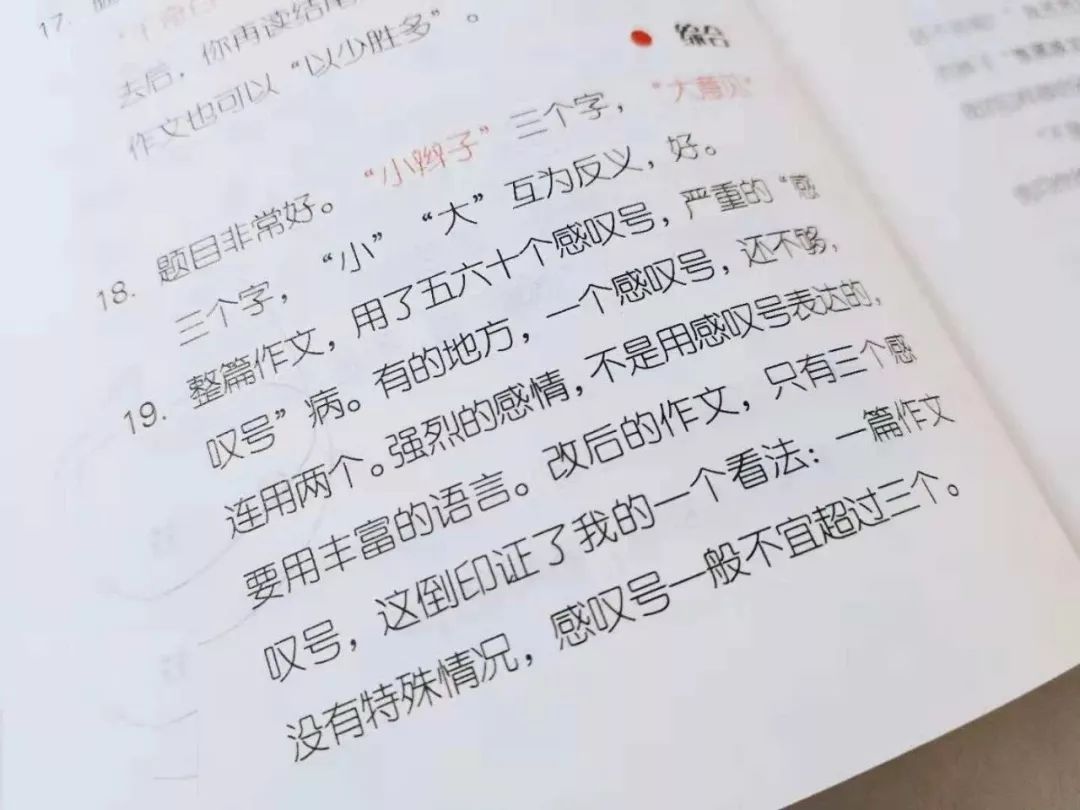 17.
去后，你再读结尾
作文也可以“以少胜多”。
综合
18. 题目非常好。“小辫子”三个字，“大意见”
三个字，“小”“大”互为反义，好。
19. 整篇作文，用了五六十个感叹号，严重的“感
叹号”病。有的地方，一个感叹号，还不够，
连用两个。强烈的感情，不是用感叹号表达的，
要用丰富的语言。改后的作文，只有三个感
叹号，这倒印证了我的一个看法：一篇作文
没有特殊情况，感叹号一般不宜超过三个。